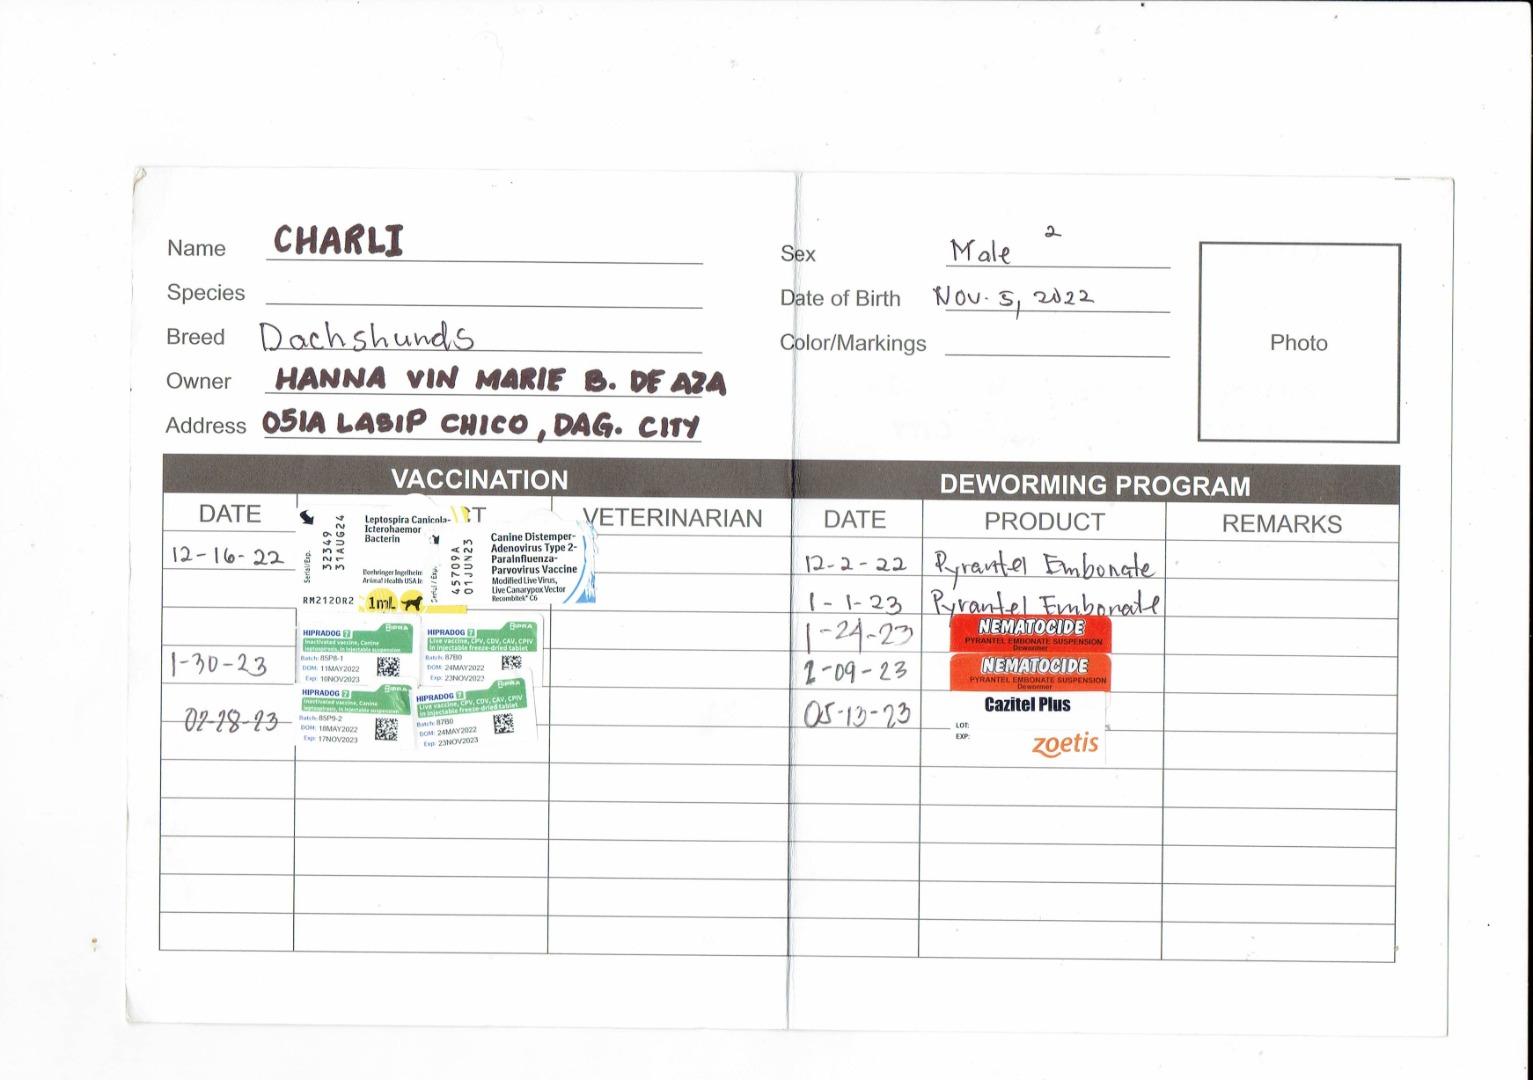 Name CHARLI
Species
Breed Dachshunds
Owner HANNA VIN MARIE B. DE AZA
Address 051A LASIP CHICO, DAG. CITY
Sex Male 2
Date of Birth Nov. 5, 2022
Color/Markings
Photo
VACCINATION
DATE CT VETERINARIAN
12-16-22
Serial/Exp.
32349
31AUG24
Leptospira Canicola-
Icterohaemor
Bacterin
Boehringer Ingelheim
Animal Health USA
RM2120R2 1mL
Serial/Exp.
45709A
01JUN23
Canine Distemper-
Adenovirus Type 2-
Parainfluenza-
Parvovirus Vaccine
Modified Live Virus,
Live Canarypox Vector
Recombitek® C6
1-30-23
HIPRADOG 7 HIPRA
Inactivated vaccine, Canine
leptospirosis, in injectable suspension
Batch: 85P8-1
DOM: 11MAY2022
Exp: 10NOV2023
HIPRADOG 7 HIPRA
Live vaccine, CPV, CDV, CAV, CPIV
in injectable freeze-dried tablet
Batch: 87B0
DOM: 24MAY2022
Exp: 23NOV2023
02-28-23
HIPRADOG 7 HIPRA
Inactivated vaccine, Canine
leptospirosis, in injectable suspension
Batch: 85P9-2
DOM: 18MAY2022
Exp: 17NOV2023
HIPRADOG 7 HIPRA
Live vaccine, CPV, CDV, CAV, CPIV
in injectable freeze-dried tablet
Batch: 87B0
DOM: 24MAY2022
Exp: 23NOV2023
DEWORMING PROGRAM
DATE PRODUCT REMARKS
12-2-22 Pyrantel Embonate
1-1-23 Pyrantel Embonate
1-24-23 NEMATOCIDE
PYRANTEL EMBONATE SUSPENSION
Dewormer
2-09-23 NEMATOCIDE
PYRANTEL EMBONATE SUSPENSION
Dewormer
05-13-23 Cazitel Plus
LOT:
EXP:
zoetis